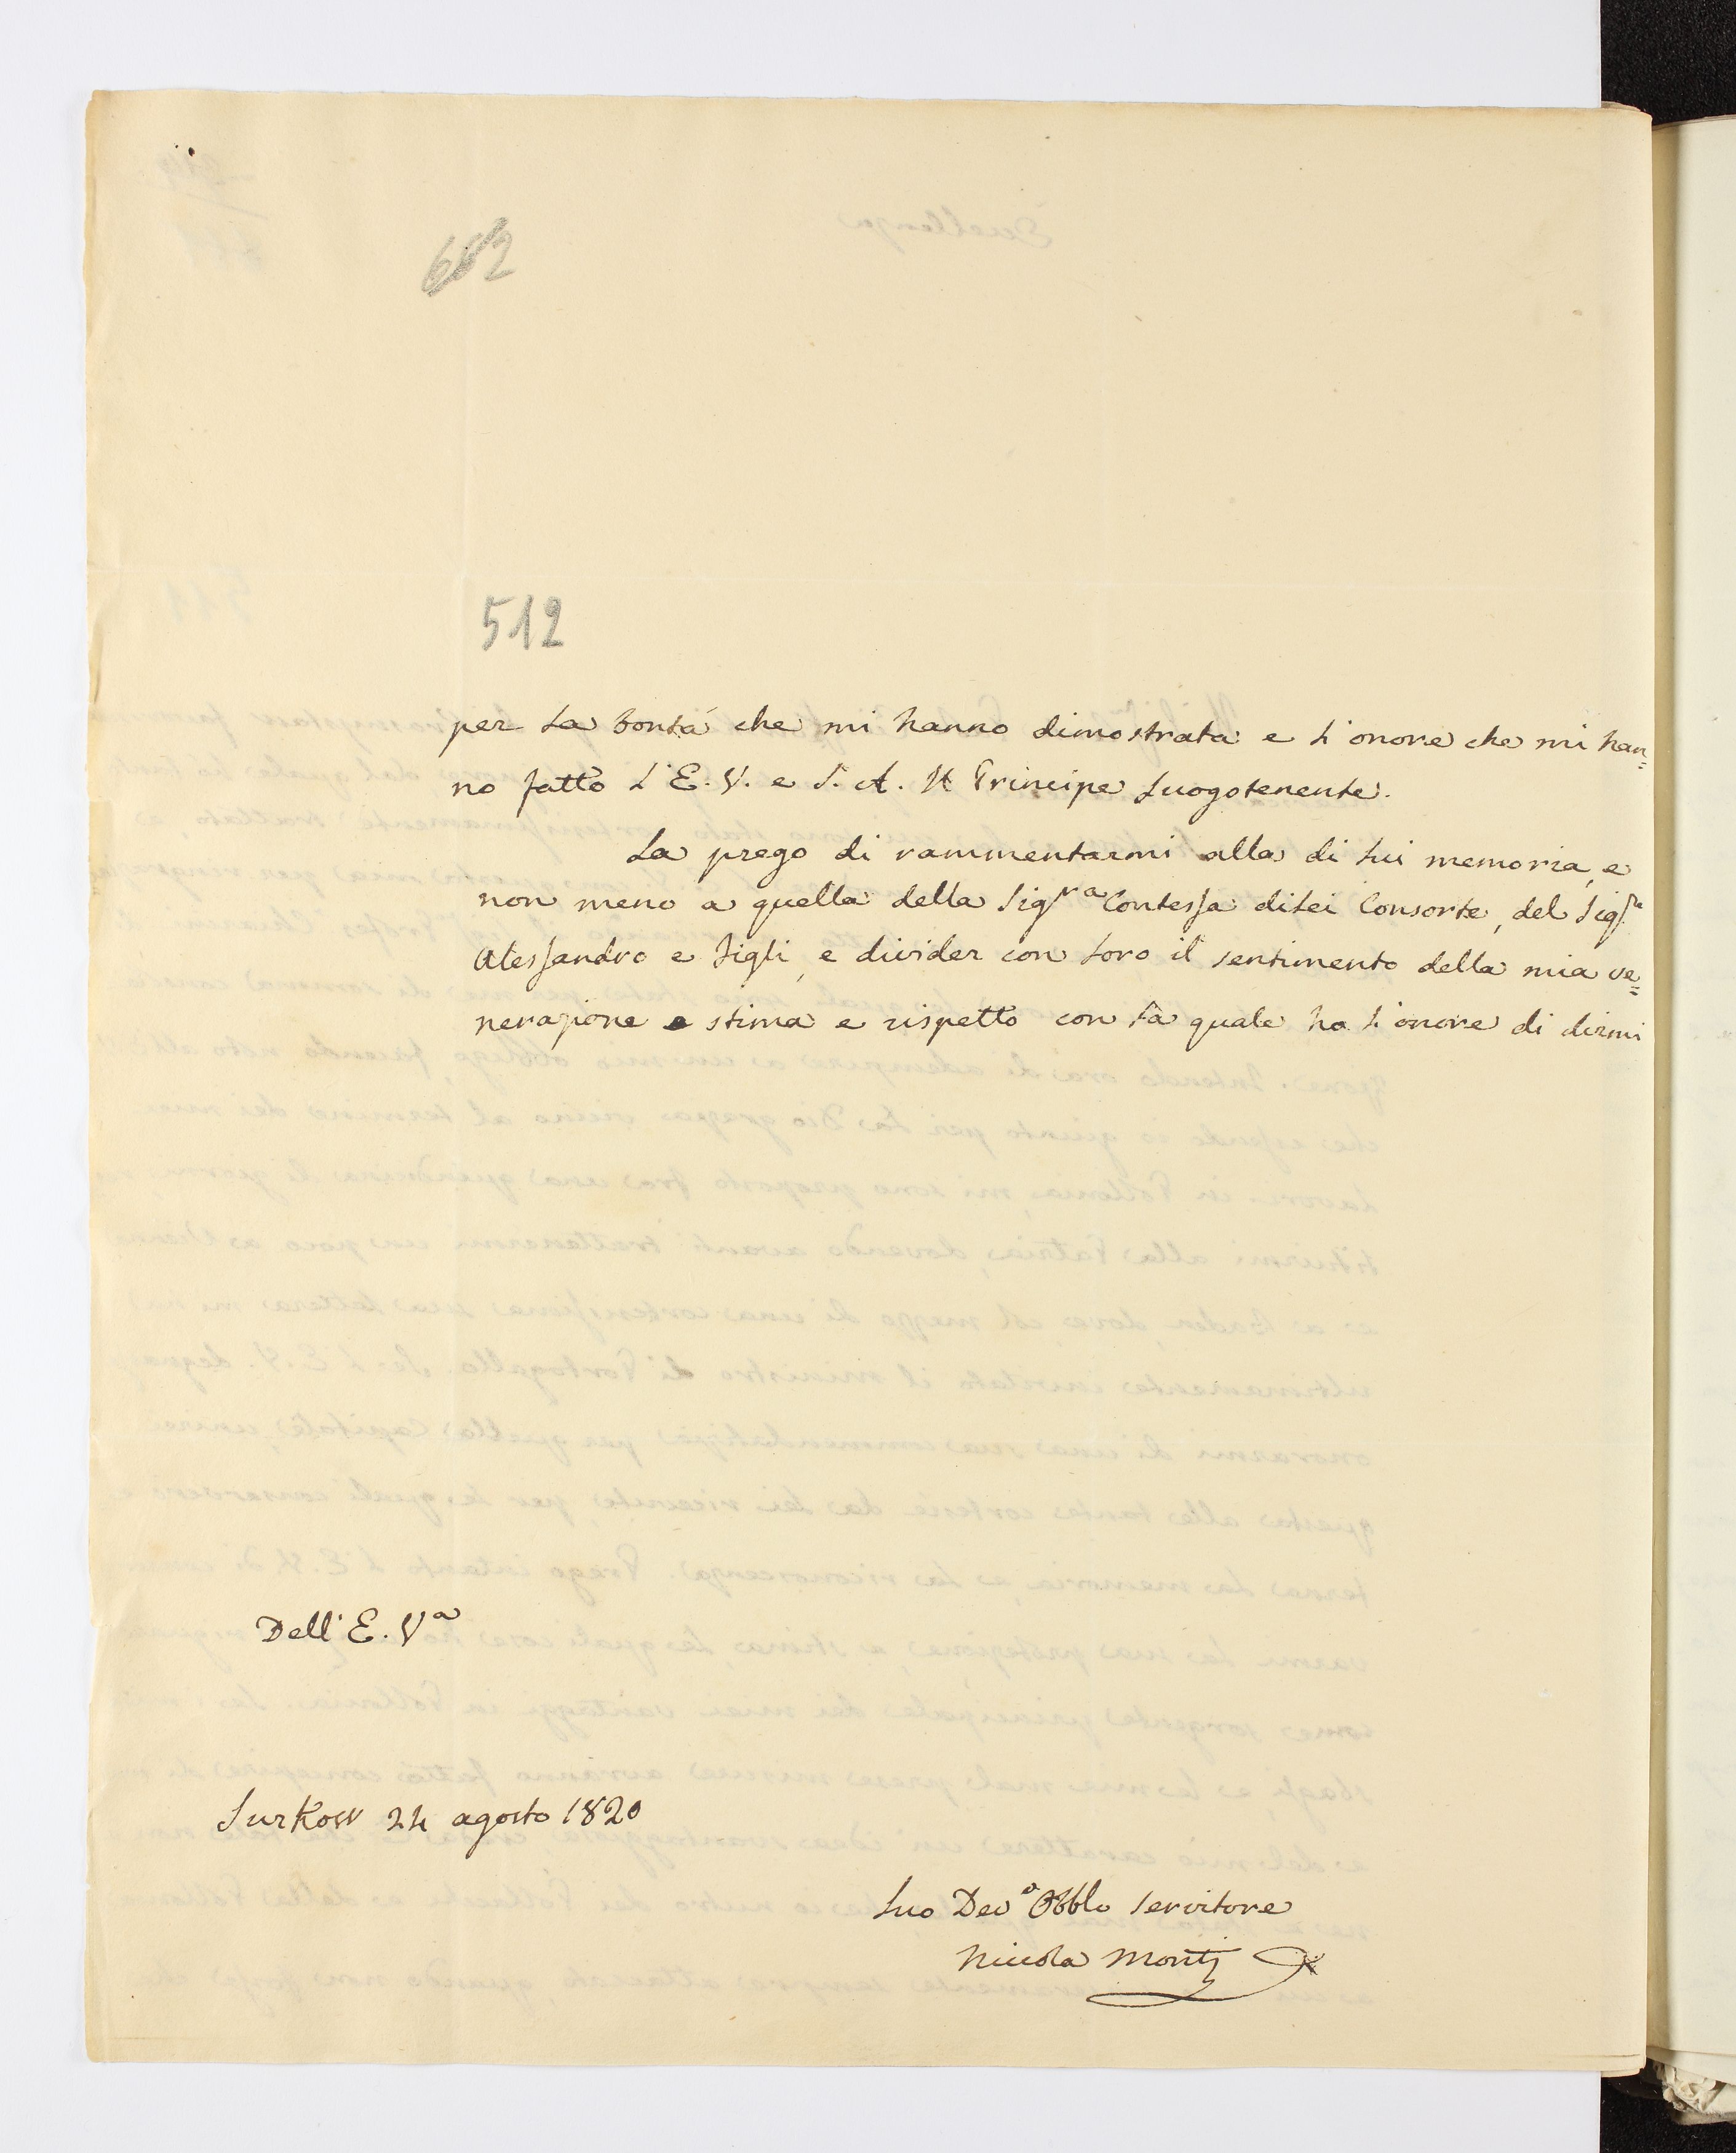 612
512
per la bontá che mi hanno dimostrata e l'onore che mi han=
no fatto l'E. V. e S. A. Il Principe Luogotenente.
La prego di rammentarmi alla di lui memoria, e
non meno a quella della Sigra Contessa di Lei Consorte, del Sigr
Alessandro e Figli, e divider con loro il sentimento della mia ve=
nerazione e stima e rispetto con la quale ho l'onore di dirmi
Dell'E. Va
Surkow 24 agosto 1820
Suo Devo Obblo Servitore
Nicola Monti